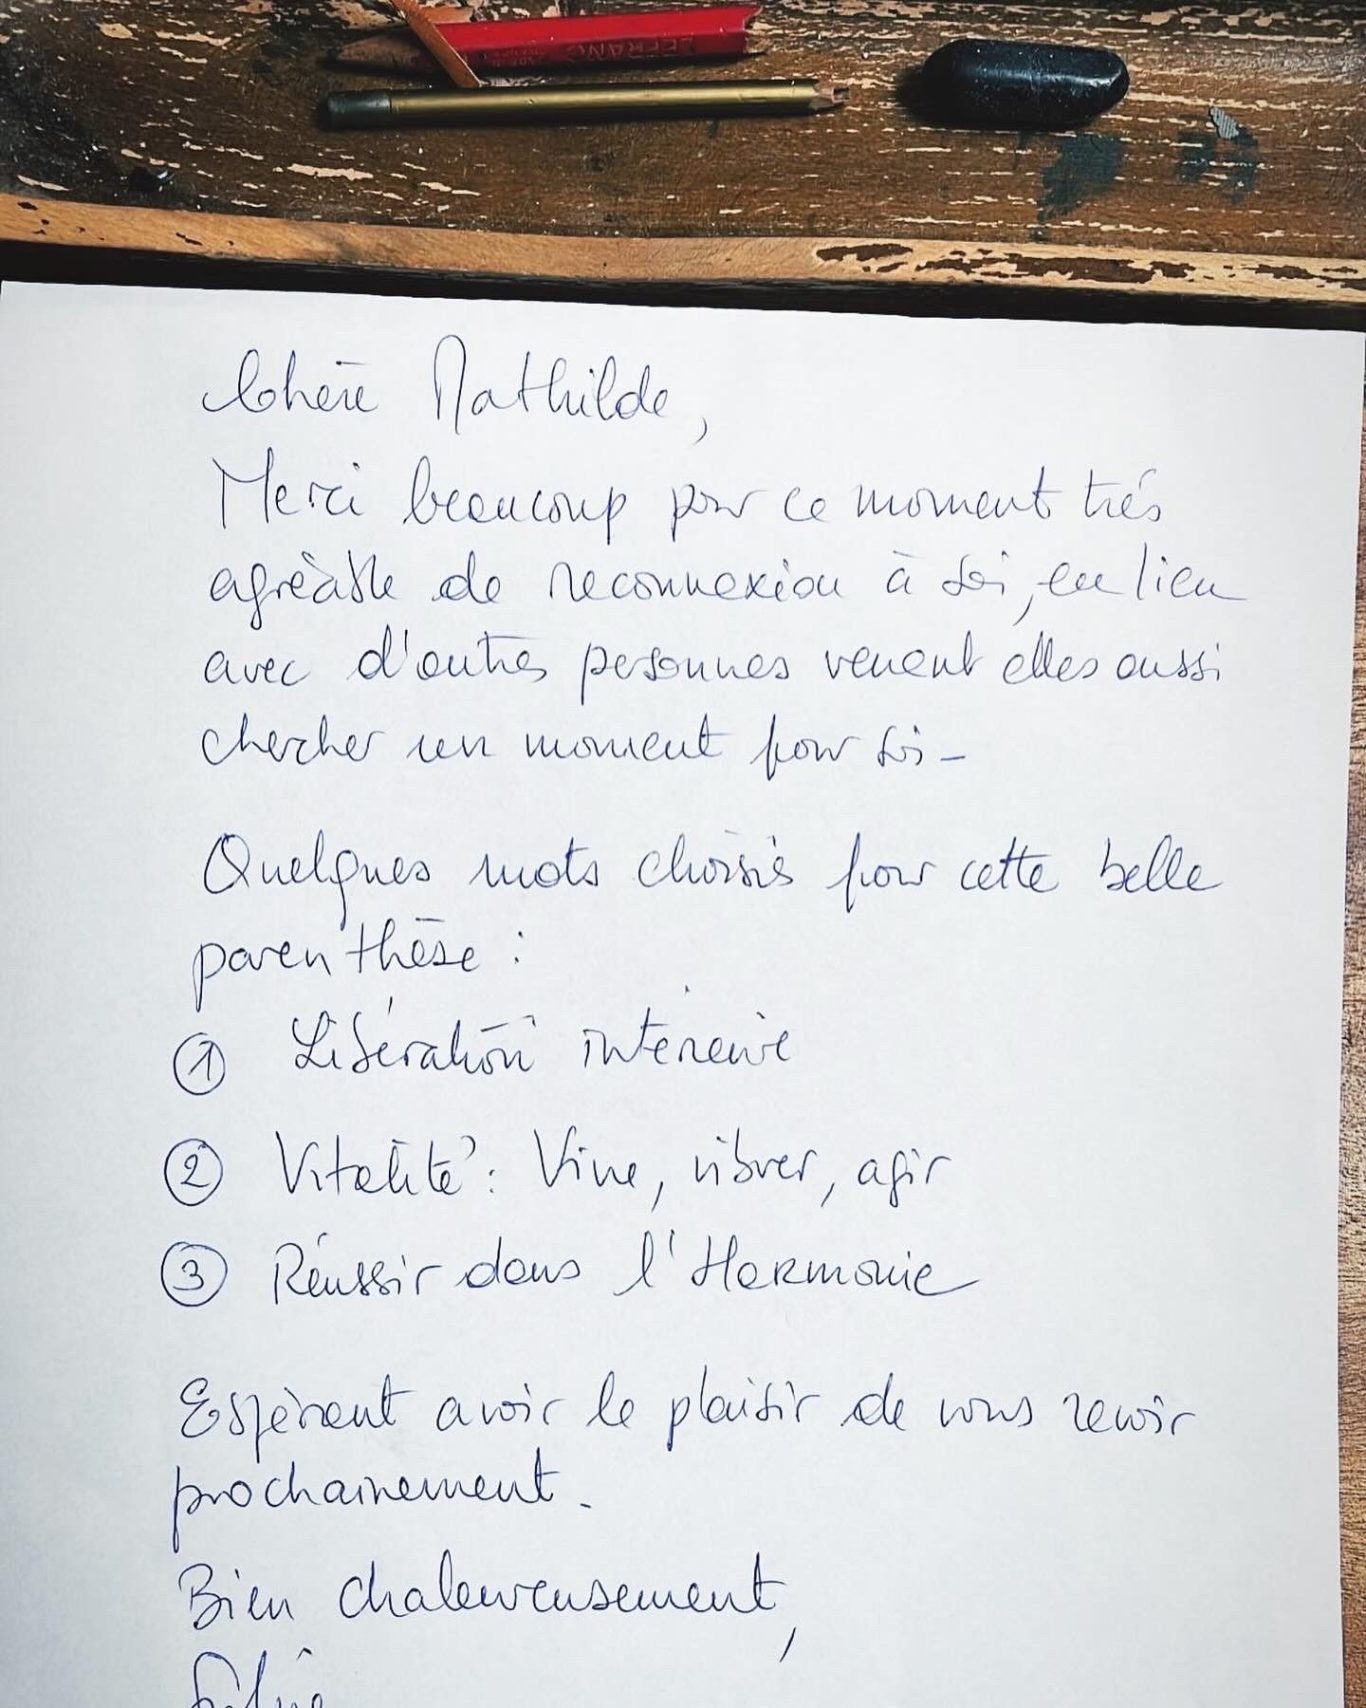 LEFRANC
Chère Mathilde,
Merci beaucoup pour ce moment très
agréable de reconnexion à soi, en lien
avec d'autres personnes venant elles aussi
chercher un moment pour soi -
Quelques mots choisis pour cette belle
parenthèse :
① Libération intérieure
② Vitalité : Vivre, vibrer, agir
③ Réussir dans l'Harmonie
Espérant avoir le plaisir de vous revoir
prochainement.
Bien chaleureusement,